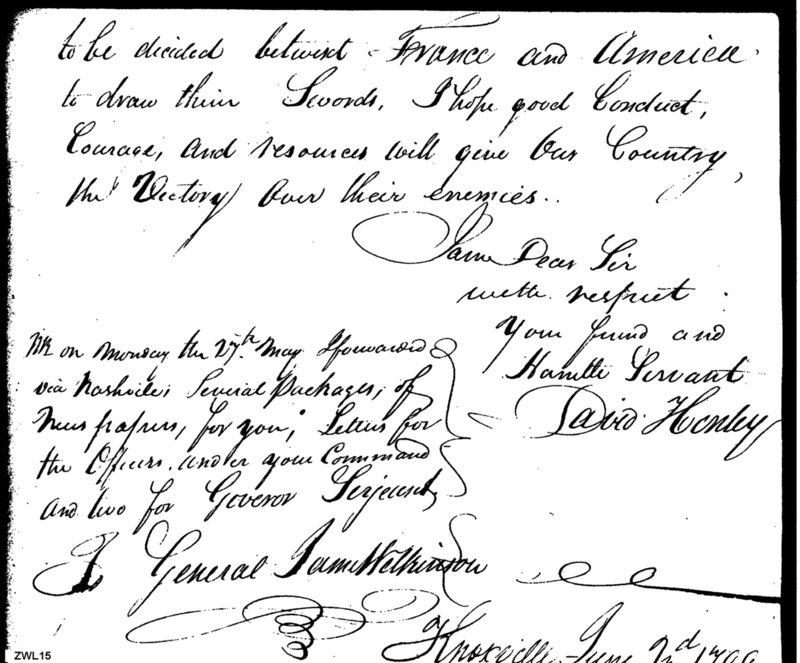 to be decided betwixt France and America
to draw their Swords, I hope good Conduct,
Courage, and resources will give Our Country,
the Victory Over their enemies..
I am Dear Sir
with respect
Your friend and
Humble Servant
David Henley
NB on Monday the 27th. May I forwarded
via Nashville; Several Packages, of
News papers, for you; Letters for
the Officers under your Command
and two for Goveror Serjeant,
General James Wilkinson
Knoxville June 2d 1799
ZWL15